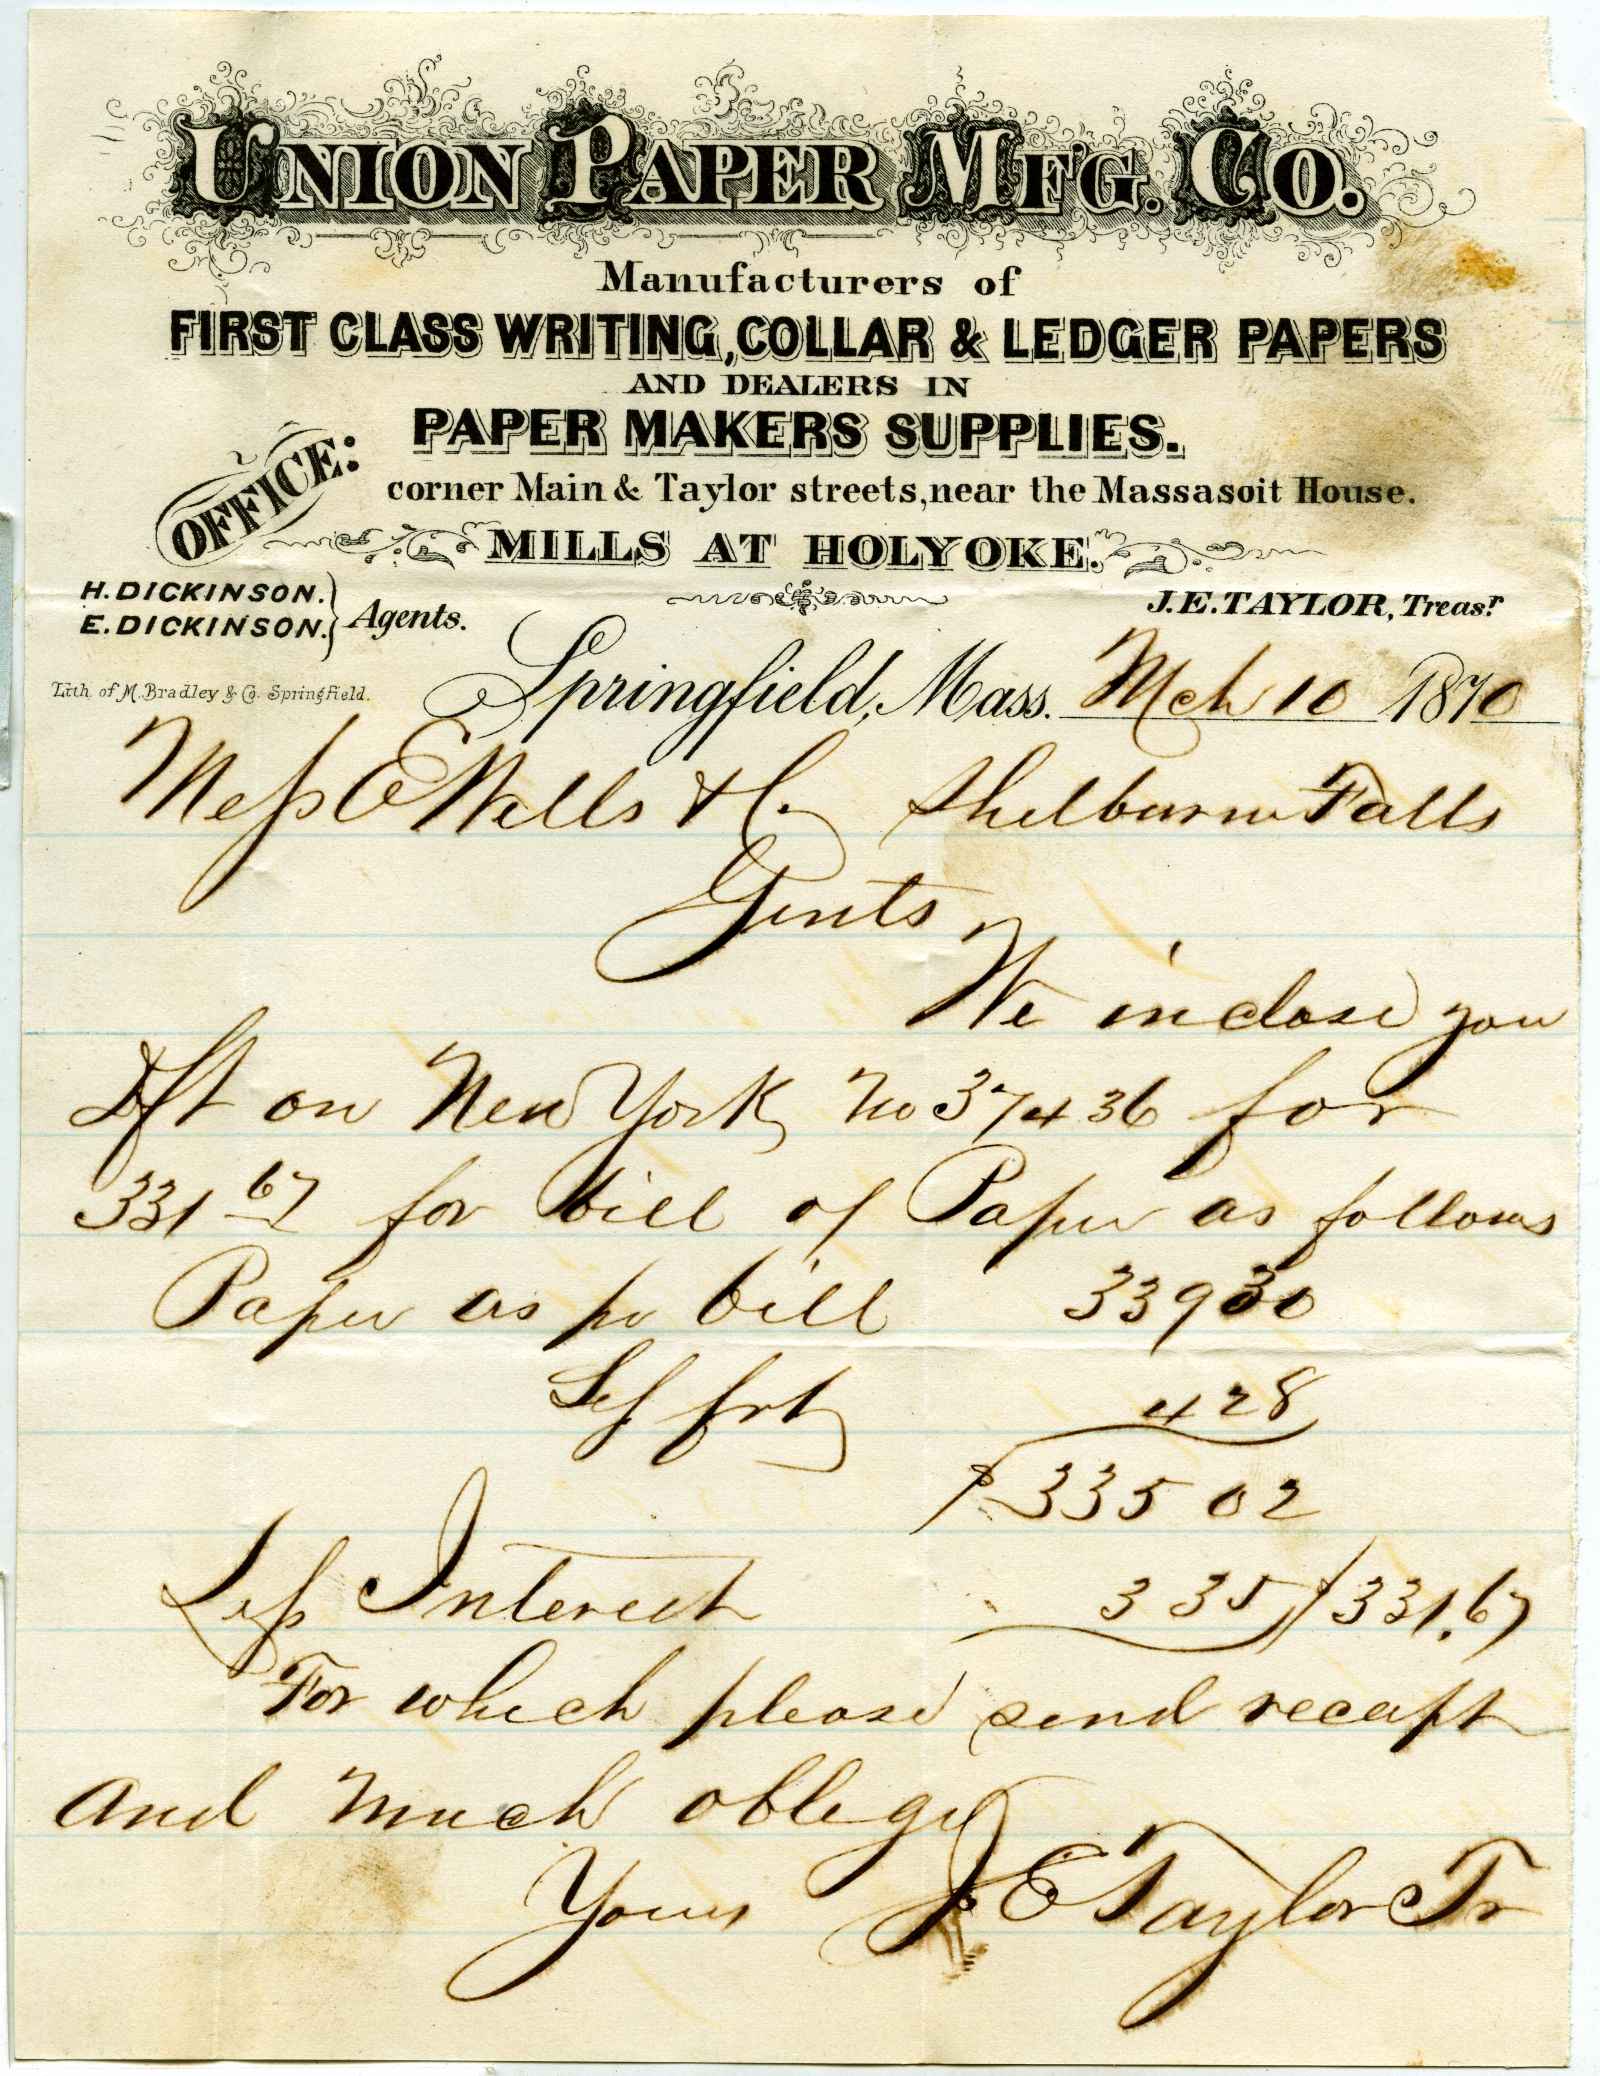 UNION PAPER MF'G. CO.
Manufacturers of
FIRST CLASS WRITING, COLLAR & LEDGER PAPERS
AND DEALERS IN
PAPER MAKERS SUPPLIES.
OFFICE: corner Main & Taylor streets, near the Massasoit House.
MILLS AT HOLYOKE.
H. DICKINSON.
E. DICKINSON. } Agents.
J. E. TAYLOR, Treasr.
Lith. of M. Bradley & Co. Springfield.
Springfield, Mass. Mch 10 1870
Mess E Wells & C. Shelburn Falls
Gents
We inclose you
Dft on New York No 37436 for
331 67 for bill of Paper as follows
Paper as pr bill 339 30
Less frt 4 28
$ 335 02
Less Interest 3 35 $331.67
For which please send recept
and much oblege
Yours J. E Taylor Tr